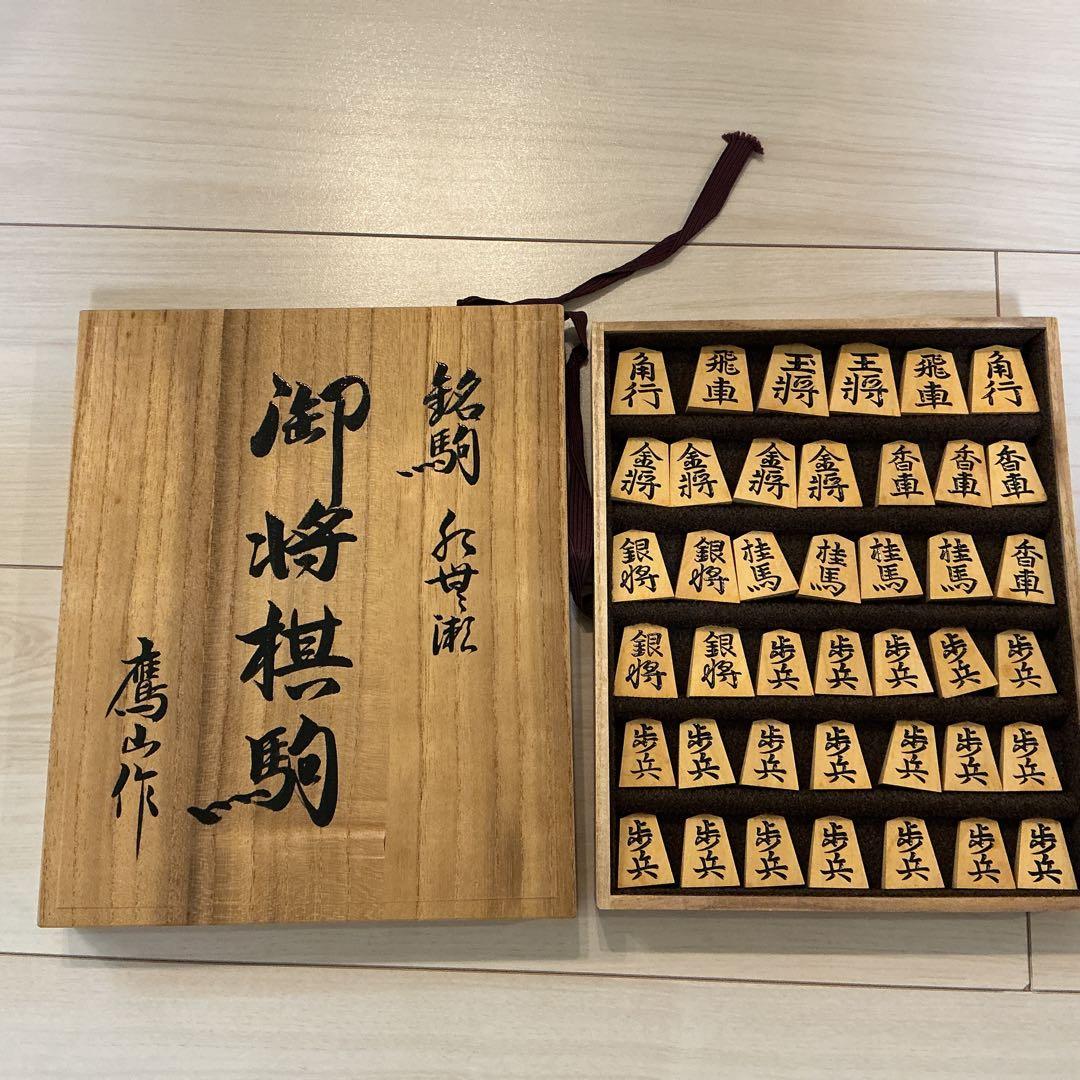 銘駒 水無瀬
御将棋駒
鷹山作
角行 飛車 玉将 王将 飛車 角行
金将 金将 金将 金将 香車 香車 香車
銀将 銀将 桂馬 桂馬 桂馬 桂馬 香車
銀将 銀将 歩兵 歩兵 歩兵 歩兵 歩兵
歩兵 歩兵 歩兵 歩兵 歩兵 歩兵 歩兵
歩兵 歩兵 歩兵 歩兵 歩兵 歩兵 歩兵